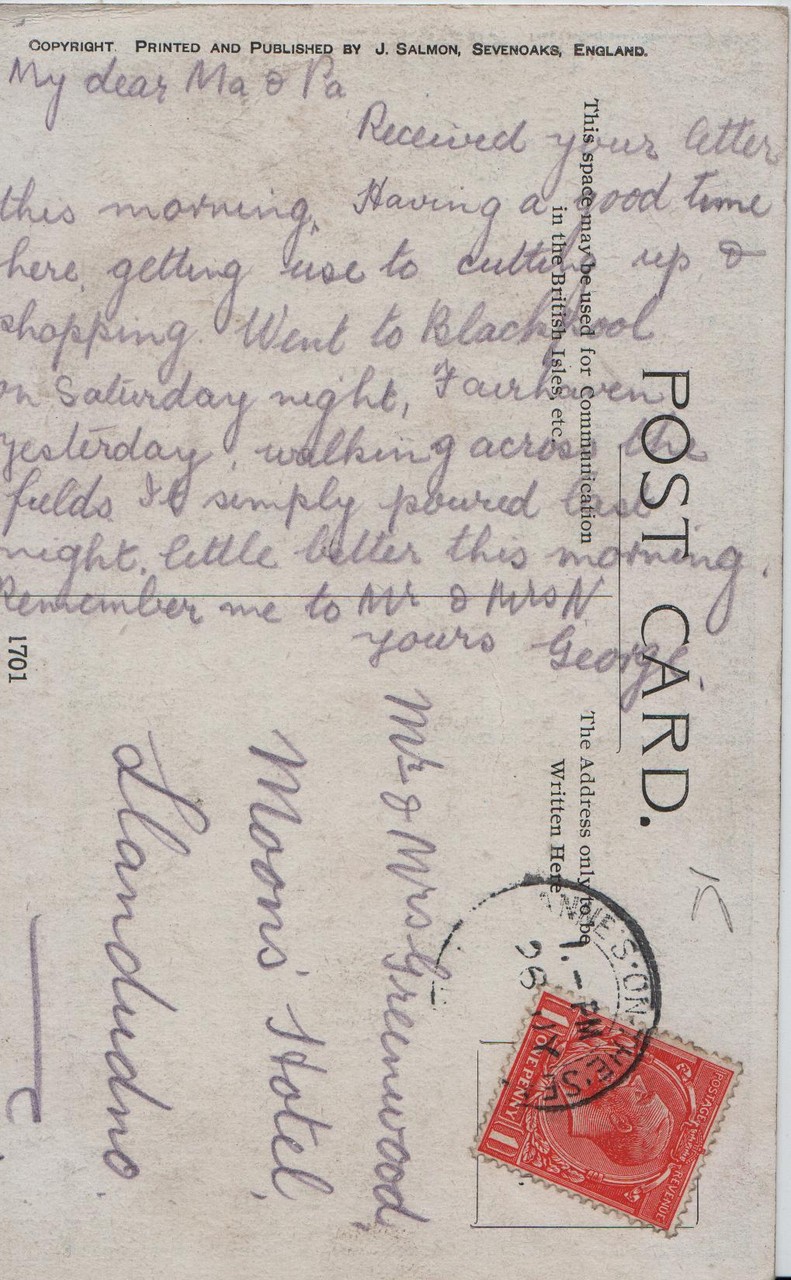 COPYRIGHT. PRINTED AND PUBLISHED BY J. SALMON, SEVENOAKS, ENGLAND.
My dear Ma & Pa
Received your letter
this morning, Having a good time
here, getting use to cutting up &
shopping. Went to Blackpool
on Saturday night, Fairhaven
yesterday, walking across the
fields It simply poured last
night, little better this morning.
Remember me to Mr & Mrs N
yours George.
POST CARD.
This space may be used for Communication
in the British Isles, etc.
The Address only to be
Written Here
1701
Mr & Mrs Greenwood,
Moons' Hotel,
Llandudno
NNE'S·ON·THE·SE
1.- PM
POSTAGE
REVENUE
1 ONE PENNY 1